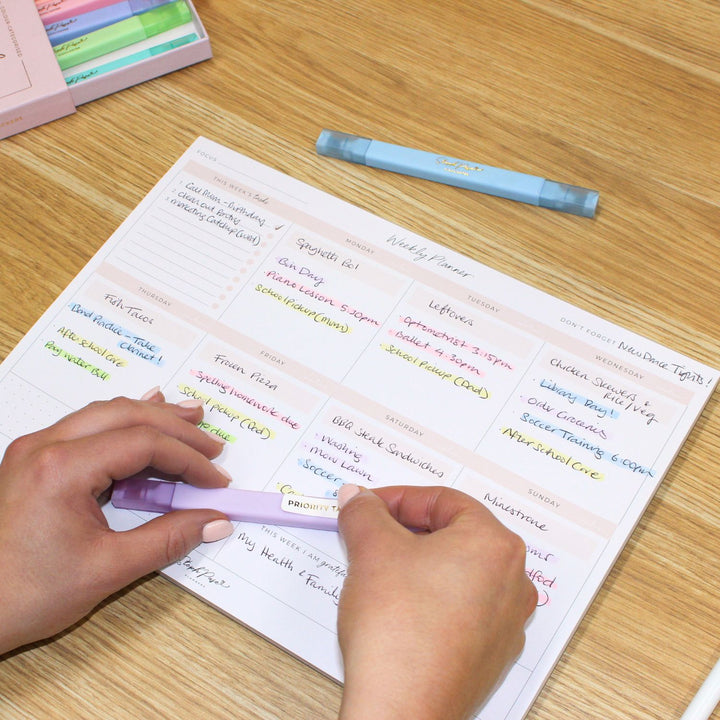 FOCUS
THIS WEEK'S
1. Call Mum - Birthday
2. Clean out Pantry
3. Marketing Catchup (Wed)
Weekly Planner
DON'T FORGET New Dance Tights!
MONDAY
Spaghetti Bol
Bin Day
Piano Lesson 5:30pm
School Pickup (Mum)
TUESDAY
Leftovers
Optometrist 3.15pm
Ballet 4.30pm
School Pickup (Dad)
WEDNESDAY
Chicken Skewers &
Rice/Veg
Library Bay!
Order Groceries
Soccer Training 6:00pm
After School Care
THURSDAY
Fish Tacos
Band Practice - Take
Clarinet!
After School Care
Pay Water Bill
FRIDAY
Frozen Pizza
Spelling homework due
School Pickup (Dad)
due
SATURDAY
BBQ Steak Sandwiches
Washing
Mow Lawn
Soccer
SUNDAY
Minestrone
PRIORITY
THIS WEEK I AM grateful
My Health & Family
Steph Pase
PLANNERS